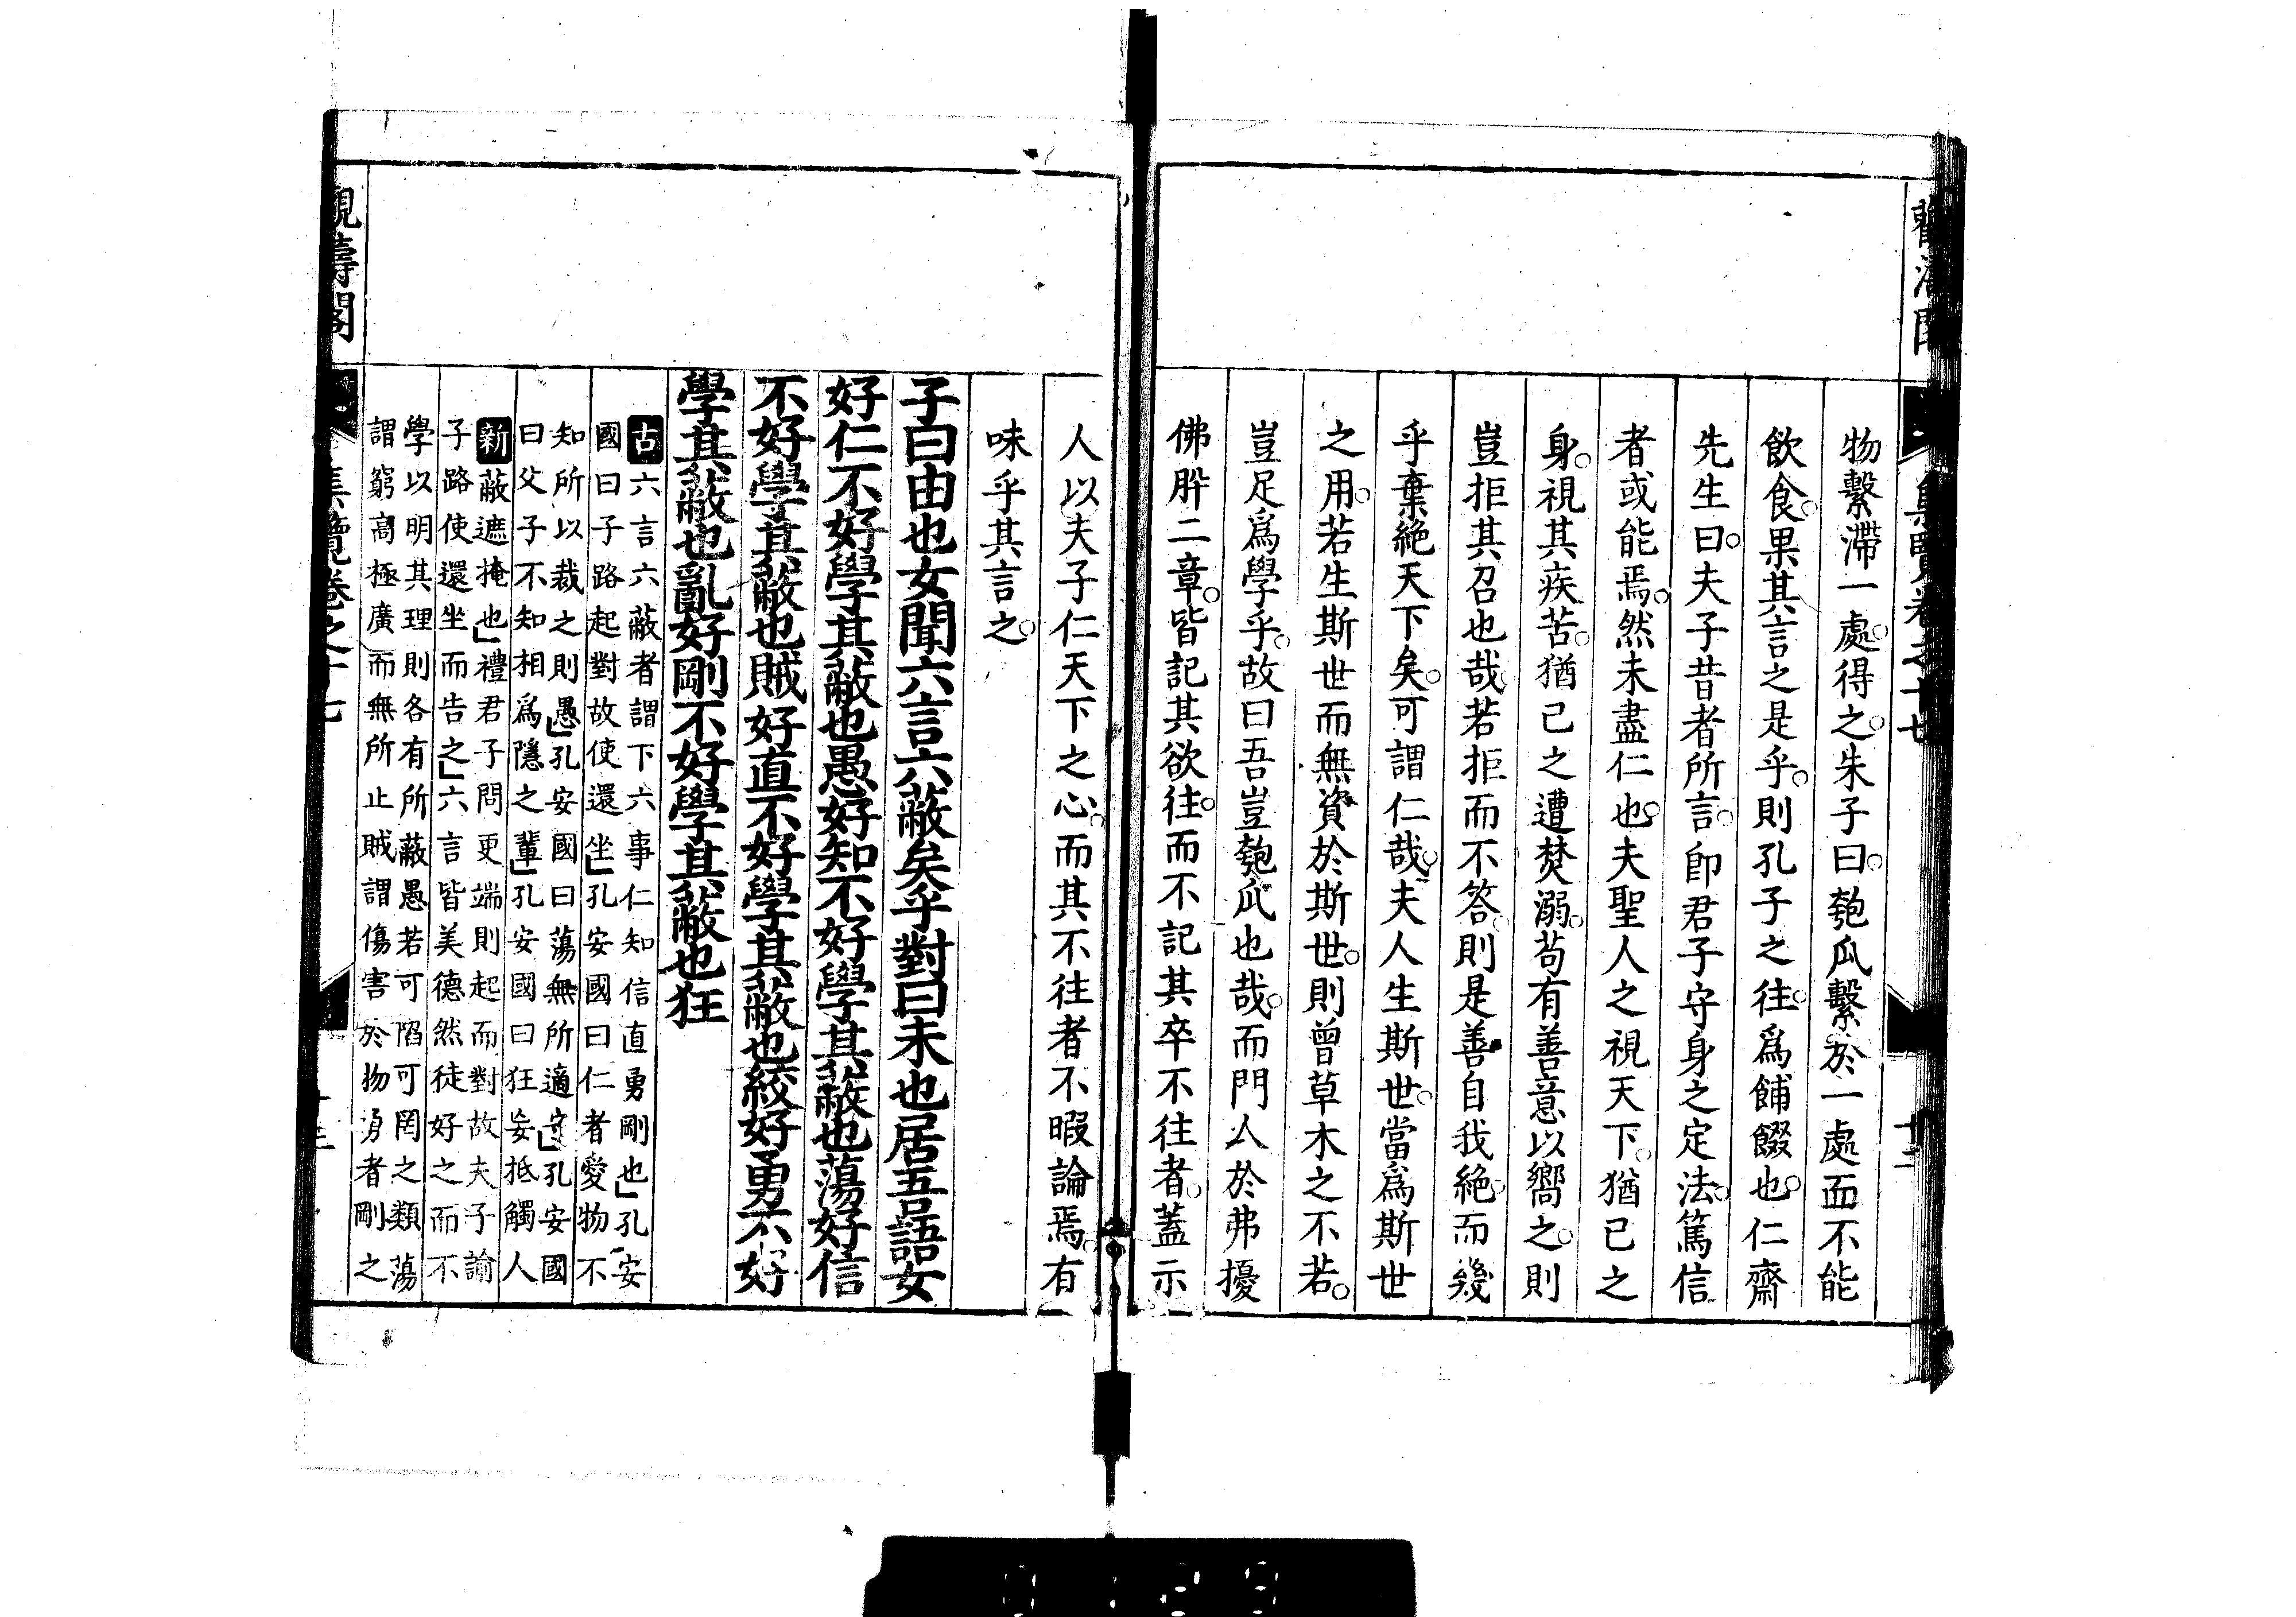 物繫滯一處得之朱子曰匏瓜繫於一處而不能
飲食果其言之是乎則孔子之往爲餔餟也仁齋
先生曰夫子昔者所言卽君子守身之定法篤信
者或能焉然未盡仁也夫聖人之視天下猶己之
身視其疾苦猶己之遭焚溺苟有善意以嚮之則
豈拒其召也哉若拒而不答則是善自我絶而幾
乎棄絶天下矣可謂仁哉夫人生斯世當爲斯世
之用若生斯世而無資於斯世則曾草木之不若
豈足爲學乎故曰吾豈匏瓜也哉而門人於弗擾
佛肸二章皆記其欲往而不記其卒不往者蓋示
人以夫子仁天下之心而其不往者不暇論焉有
味乎其言之
子曰由也女聞六言六蔽矣乎對曰未也居吾語女
好仁不好學其蔽也愚好知不好學其蔽也蕩好信
不好學其蔽也賊好直不好學其蔽也絞好勇不好
學其蔽也亂好剛不好學其蔽也狂
古六言六蔽者謂下六事仁知信直勇剛也孔安
國曰子路起對故使還坐孔安國曰仁者愛物不
知所以裁之則愚孔安國曰蕩無所適守孔安國
曰父子不知相爲隱之輩孔安國曰狂妄抵觸人
新蔽遮掩也禮君子問更端則起而對故夫子諭
子路使還坐而告之六言皆美德然徒好之而不
學以明其理則各有所蔽愚若可陷可罔之類蕩
謂窮高極廣而無所止賊謂傷害於物勇者剛之
觀濤閣
集覽卷之十七